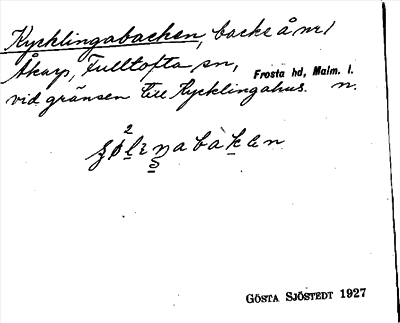 Kycklingabacken, backe å nr 1
Åkarp, Fulltofta sn, Frosta hd, Malm. l.
vid gränsen till Kycklingahus. n.
Gösta Sjöstedt 1927